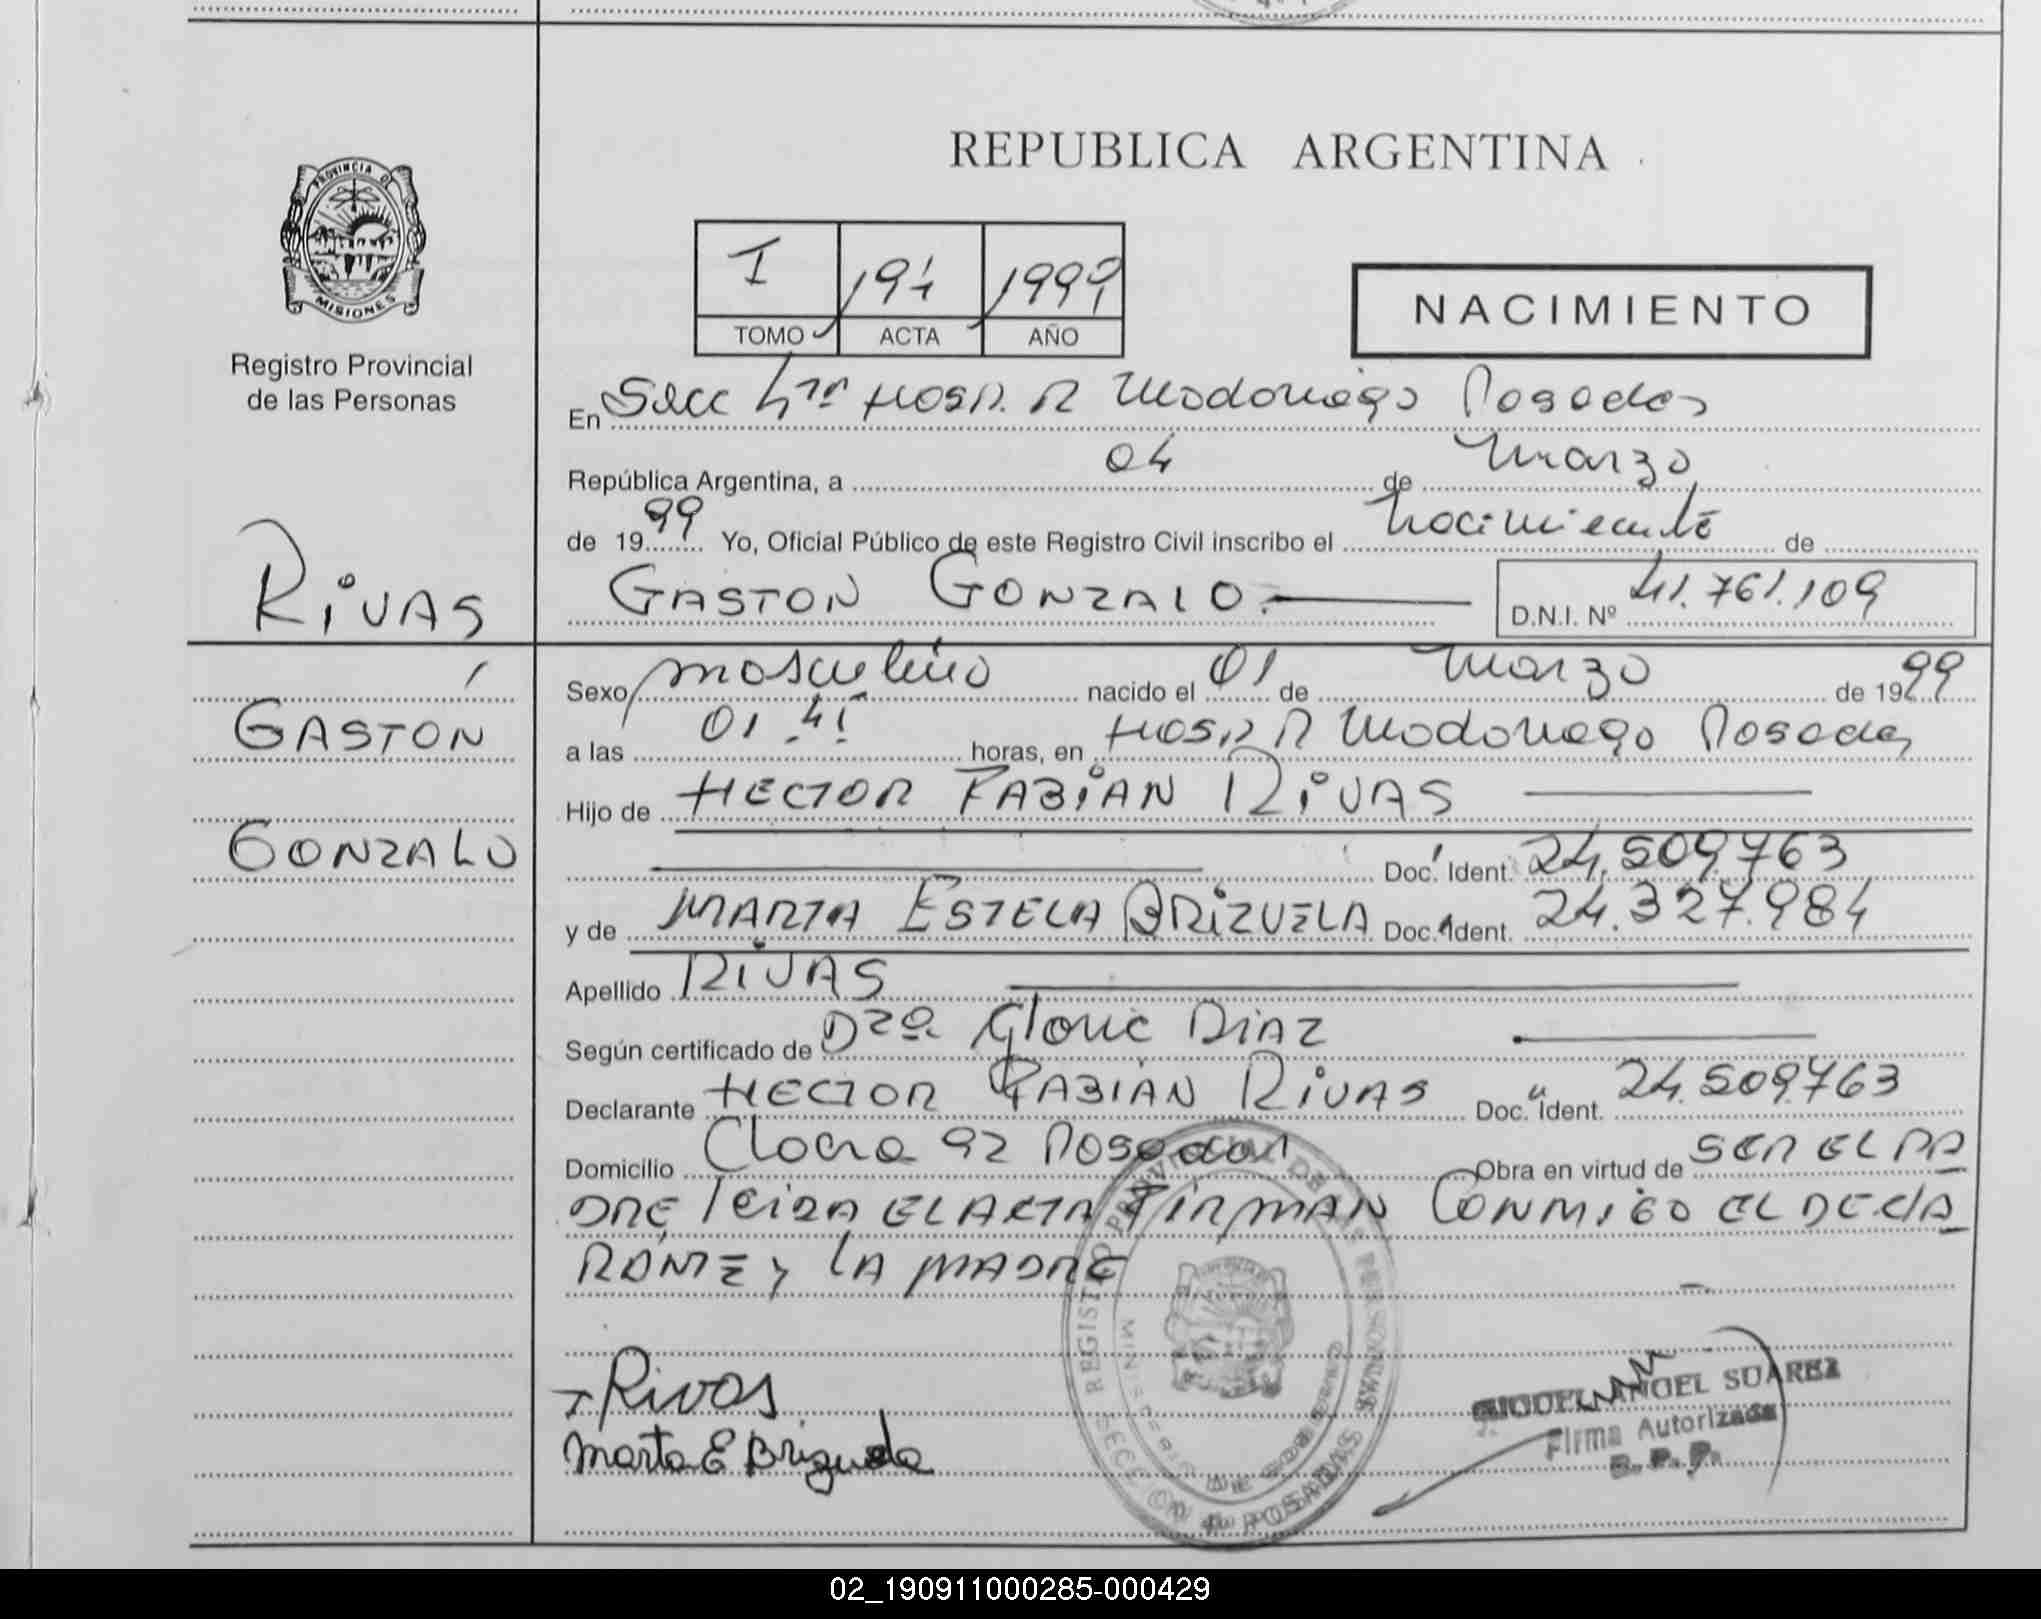 REPUBLICA ARGENTINA
PROVINCIA DE
MISIONES
Registro Provincial
de las Personas
I 194 1999
TOMO ACTA AÑO
NACIMIENTO
En Secc 4ta Hosp. R Madariaga Posadas
República Argentina, a 04 de Marzo
de 1999 Yo, Oficial Público de este Registro Civil inscribo el nacimiento de
RIVAS
GASTON GONZALO.
D.N.I. Nº 41.761.109
GASTON
GONZALO
Sexo masculino nacido el 01 de Marzo de 1999
a las 01.41 horas, en Hosp R Madariaga Posadas
Hijo de HECTOR FABIAN RIVAS
Doc. Ident. 24.509.763
y de MARTA ESTELA BRIZUELA Doc. Ident. 24.327.984
Apellido RIVAS
Según certificado de Dra. Gloria DIAZ
Declarante HECTOR FABIAN RIVAS Doc. Ident. 24.509763
Domicilio 92 Posadas Obra en virtud de SER EL PA
DRE LEIDA EL ACTA FIRMAN CONMIGO EL DECLA
RANTE y LA MADRE
Rivas
Marta E Brizuela
MIGUEL ANGEL SUAREZ
Firma Autorizada
R. P. P.
REGISTRO PROVINCIAL DE LAS PERSONAS
MINISTERIO DE GOBIERNO
SECCION 4a POSADAS
02_190911000285-000429